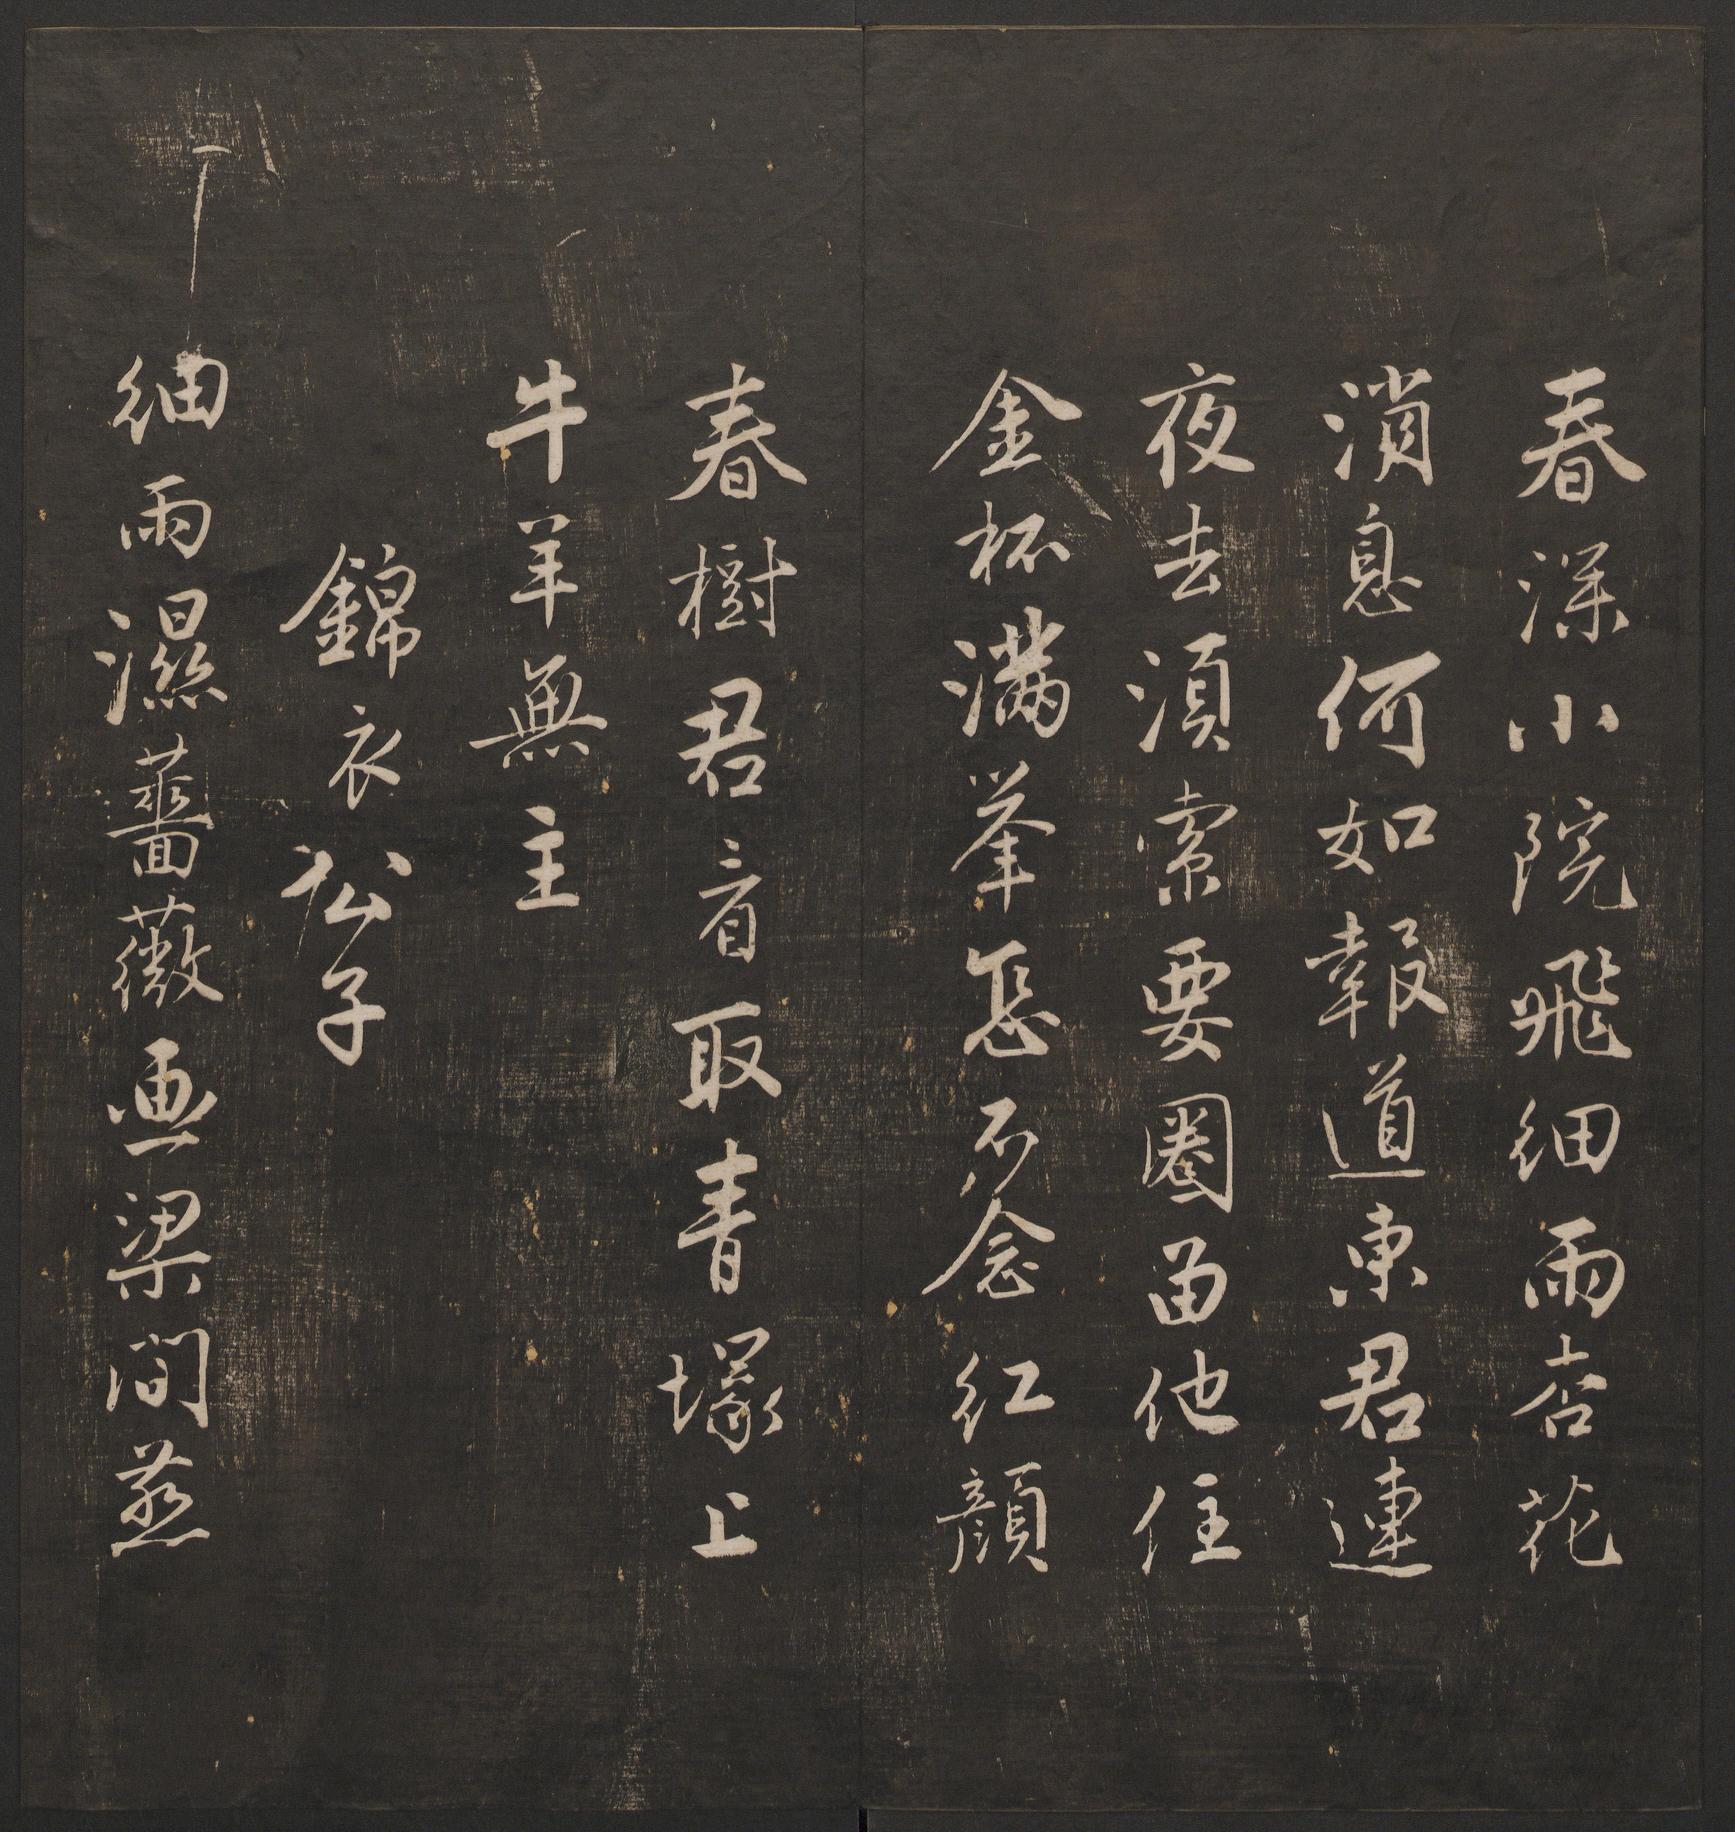 春深小院飛細雨杏花
消息何如報道東君連
夜去須索要圈留他住
金杯滿舉怎不念紅顔
春樹君看取青塚上
牛羊無主
錦衣公子
細雨濕薔薇画梁間燕